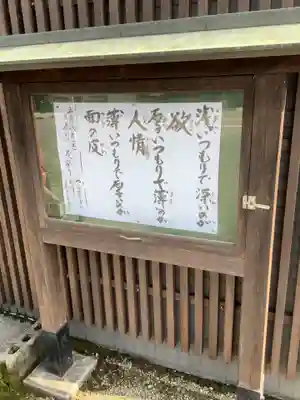 浅いつもりで深いのが
欲
厚いつもりで薄いのが
人情
薄いつもりで厚いのが
面の皮